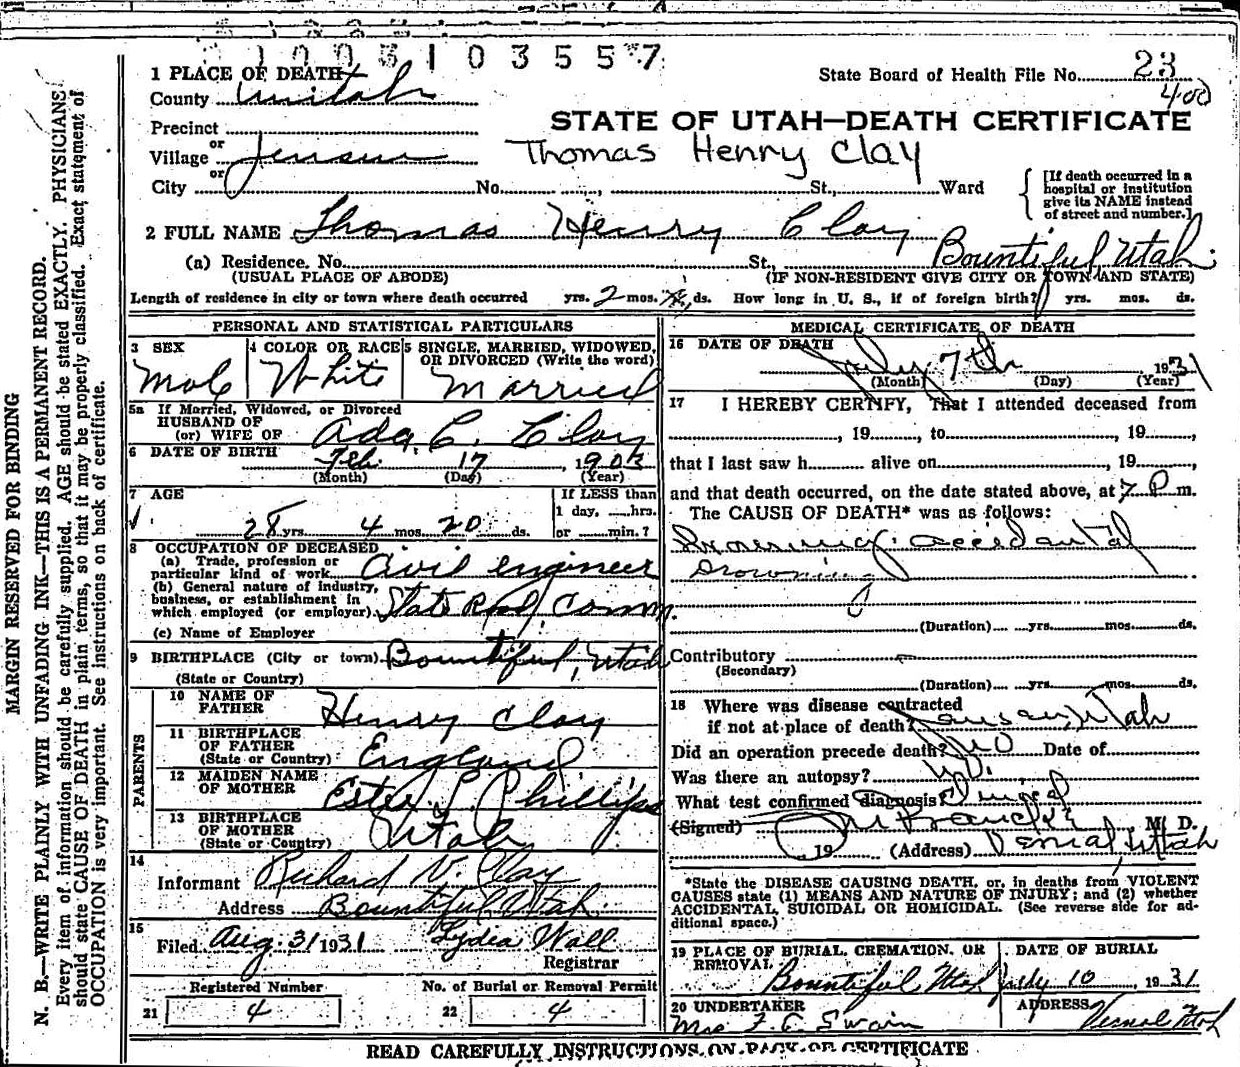 1003103557
State Board of Health File No. 23
400
1 PLACE OF DEATH
County Unitah
STATE OF UTAH—DEATH CERTIFICATE
Precinct
or
Village Jensen
Thomas Henry Clay
or
City No. St., Ward
[If death occurred in a
hospital or institution
give its NAME instead
of street and number.]
2 FULL NAME Thomas Henry Clay
(a) Residence. No. St., Bountiful, Utah.
(USUAL PLACE OF ABODE) (IF NON-RESIDENT GIVE CITY OR TOWN AND STATE)
Length of residence in city or town where death occurred yrs. 2 mos. ds. How long in U. S., if of foreign birth? yrs. mos. ds.
PERSONAL AND STATISTICAL PARTICULARS
3 SEX
Male
4 COLOR OR RACE
White
5 SINGLE, MARRIED, WIDOWED,
OR DIVORCED (Write the word)
Married
5a If Married, Widowed, or Divorced
HUSBAND OF
(or) WIFE OF Ada C. Clay
6 DATE OF BIRTH Feb. 17, 1903
(Month) (Day) (Year)
7 AGE
28 yrs. 4 mos. 20 ds.
If LESS than
1 day, hrs.
or min.?
8 OCCUPATION OF DECEASED
(a) Trade, profession or
particular kind of work Civil engineer
(b) General nature of industry,
business, or establishment in
which employed (or employer). State Road Comm.
(c) Name of Employer
9 BIRTHPLACE (City or town) Bountiful, Utah
(State or Country)
PARENTS
10 NAME OF
FATHER Henry Clay
11 BIRTHPLACE
OF FATHER
(State or Country) England
12 MAIDEN NAME
OF MOTHER Ester L. Phillips
13 BIRTHPLACE
OF MOTHER
(State or Country) Utah
14
Informant Richard V. Clay
Address Bountiful Utah
15
Filed Aug. 31 1931 Lydia Wall
Registrar
Registered Number
21 4
No. of Burial or Removal Permit
22 4
MEDICAL CERTIFICATE OF DEATH
16 DATE OF DEATH
July 7th 1931
(Month) (Day) (Year)
17 I HEREBY CERTIFY, That I attended deceased from
, 19 , to , 19 ,
that I last saw h alive on , 19 ,
and that death occurred, on the date stated above, at 7 P m.
The CAUSE OF DEATH* was as follows:
Drowning: accidental
drowning
(Duration) yrs. mos. ds.
Contributory
(Secondary)
(Duration) yrs. mos. ds.
18 Where was disease contracted
if not at place of death? Utah
Did an operation precede death? No Date of
Was there an autopsy? No.
What test confirmed diagnosis?
(Signed) M. D.
, 19 (Address) Vernal, Utah
*State the DISEASE CAUSING DEATH, or, in deaths from VIOLENT
CAUSES state (1) MEANS AND NATURE OF INJURY; and (2) whether
ACCIDENTAL, SUICIDAL OR HOMICIDAL. (See reverse side for ad-
ditional space.)
19 PLACE OF BURIAL, CREMATION, OR
REMOVAL
Bountiful Utah
DATE OF BURIAL
July 10, 1931
20 UNDERTAKER
Mrs F. E. Swain
ADDRESS
Vernal Utah
READ CAREFULLY INSTRUCTIONS ON BACK OF CERTIFICATE
MARGIN RESERVED FOR BINDING
N. B.—WRITE PLAINLY WITH UNFADING INK—THIS IS A PERMANENT RECORD.
Every item of information should be carefully supplied. AGE should be stated EXACTLY. PHYSICIANS
should state CAUSE OF DEATH in plain terms, so that it may be properly classified. Exact statement of
OCCUPATION is very important. See instructions on back of certificate.